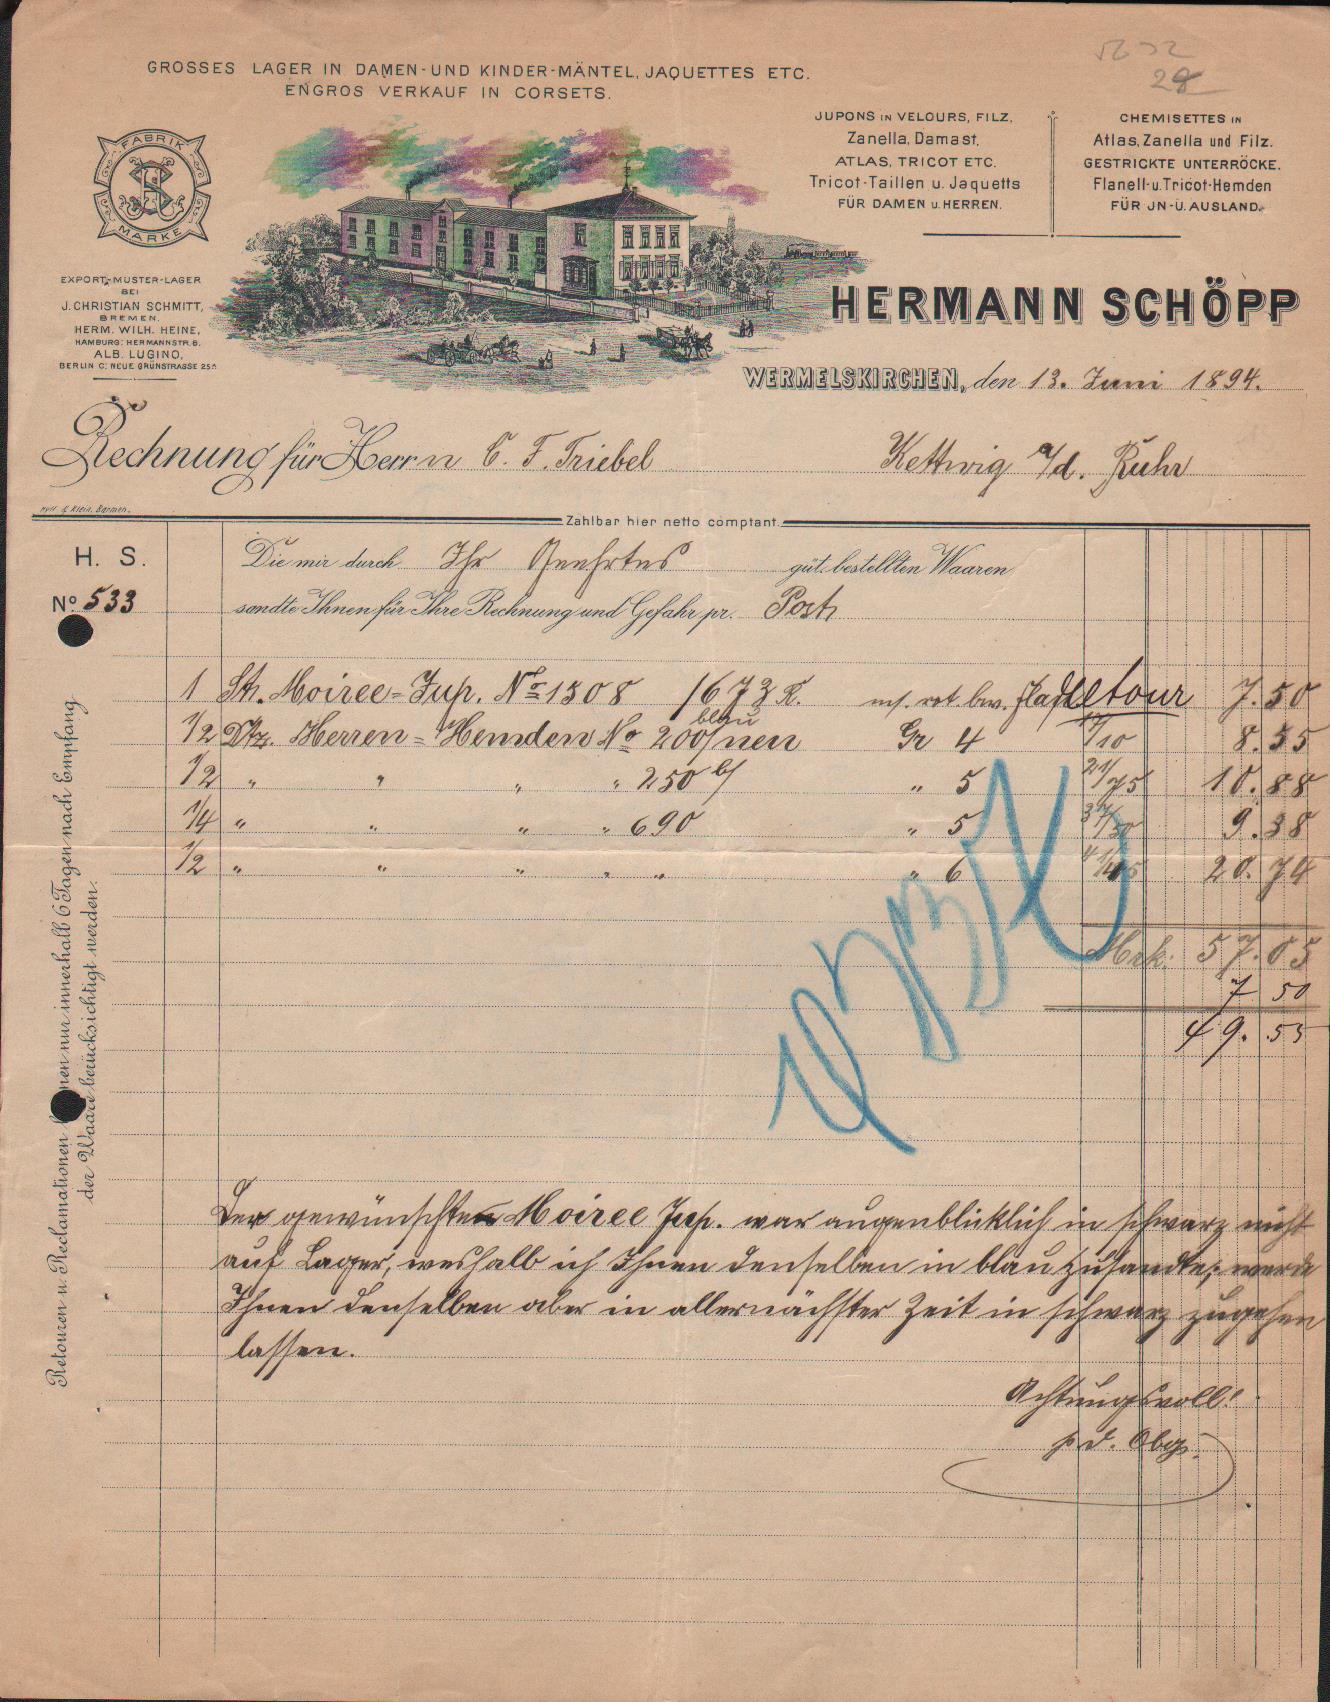 GROSSES LAGER IN DAMEN-UND KINDER-MÄNTEL, JAQUETTES ETC.
ENGROS VERKAUF IN CORSETS.
JUPONS IN VELOURS, FILZ,
Zanella, Damast,
ATLAS, TRICOT ETC.
Tricot-Taillen u. Jaquetts
FÜR DAMEN u. HERREN.
CHEMISETTES IN
Atlas, Zanella und Filz.
GESTRICKTE UNTERRÖCKE.
Flanell-u. Tricot-Hemden
FÜR JN-U. AUSLAND.
FABRIK
MARKE
EXPORT-MUSTER-LAGER
BEI
J. CHRISTIAN SCHMITT,
BREMEN.
HERM. WILH. HEINE,
HAMBURG: HERMANNSTR. 6.
ALB. LUGINO,
BERLIN C: NEUE GRÜNSTRASSE 25a
HERMANN SCHÖPP
WERMELSKIRCHEN, den 13. Juni 1894.
Rechnung für Herrn C. F. Triebel Kettwig a/d. Ruhr
& Klein, Barmen.
Zahlbar hier netto comptant.
H. S.
No. 533
Die mir durch Ihr Geehrtes güt. bestellten Waaren
sandte Ihnen für Ihre Rechnung und Gefahr pr. Post
1 St. Moiree-Jup. No 1308 1673 R. m/ rot bw. retour 7.50
blau
1/2 Dtz. Herren-Hemden No 200/nen Gr 4 17/10 8.55
1/2 " " " " 250 b/ " 5 21/75 10.88
1/4 " " " " 690 " 5 37/50 9.38
1/2 " " " " " " 6 41/45 20.74
Mrk: 57.05
7 50
49.55
Der gewünschte Moiree Jup. war augenblicklich in schwarz nicht
auf Lager, weshalb ich Ihnen denselben in blau zusandte; werde
Ihnen denselben aber in allernächster Zeit in schwarz zugehen
lassen.
Achtungsvoll!
p d. Obg.
Retouren u. Reclamationen können nur innerhalb 6 Tagen nach Empfang
der Waare berücksichtigt werden.